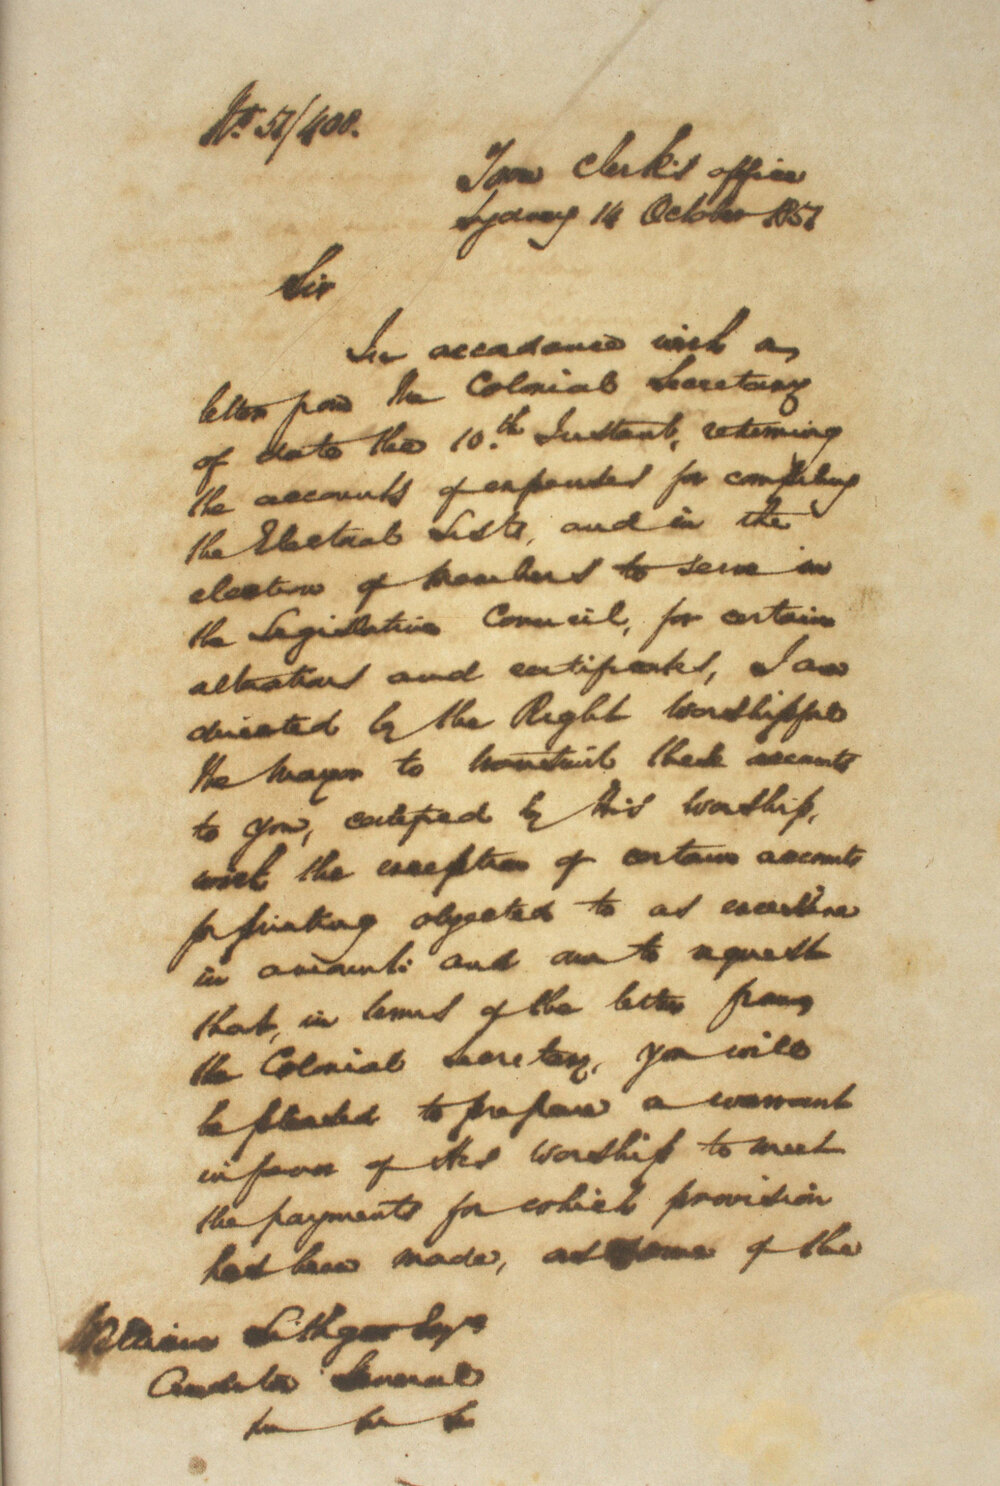 No. 51/408.
Town Clerk's office
Sydney 14 October 1851
Sir
In accordance with a
letter from the Colonial Secretary
of date the 10.th Instant, returning
the accounts of expenses for compiling
the Electoral Lists, and in the
election of Members to serve in
the Legislative Council, for certain
alterations and certificates, I am
directed by the Right Worshipful
the Mayor to transmit these accounts
to you, certified by His Worship,
with the exception of certain accounts
for printing objected to as excessive
in amount: and am to request
that, in terms of the letter from
the Colonial Secretary, you will
be pleased to prepare a warrant
in favor of His Worship to meet
the payments for which provision
has been made, as some of the
William Lithgow Esqre
Auditor General